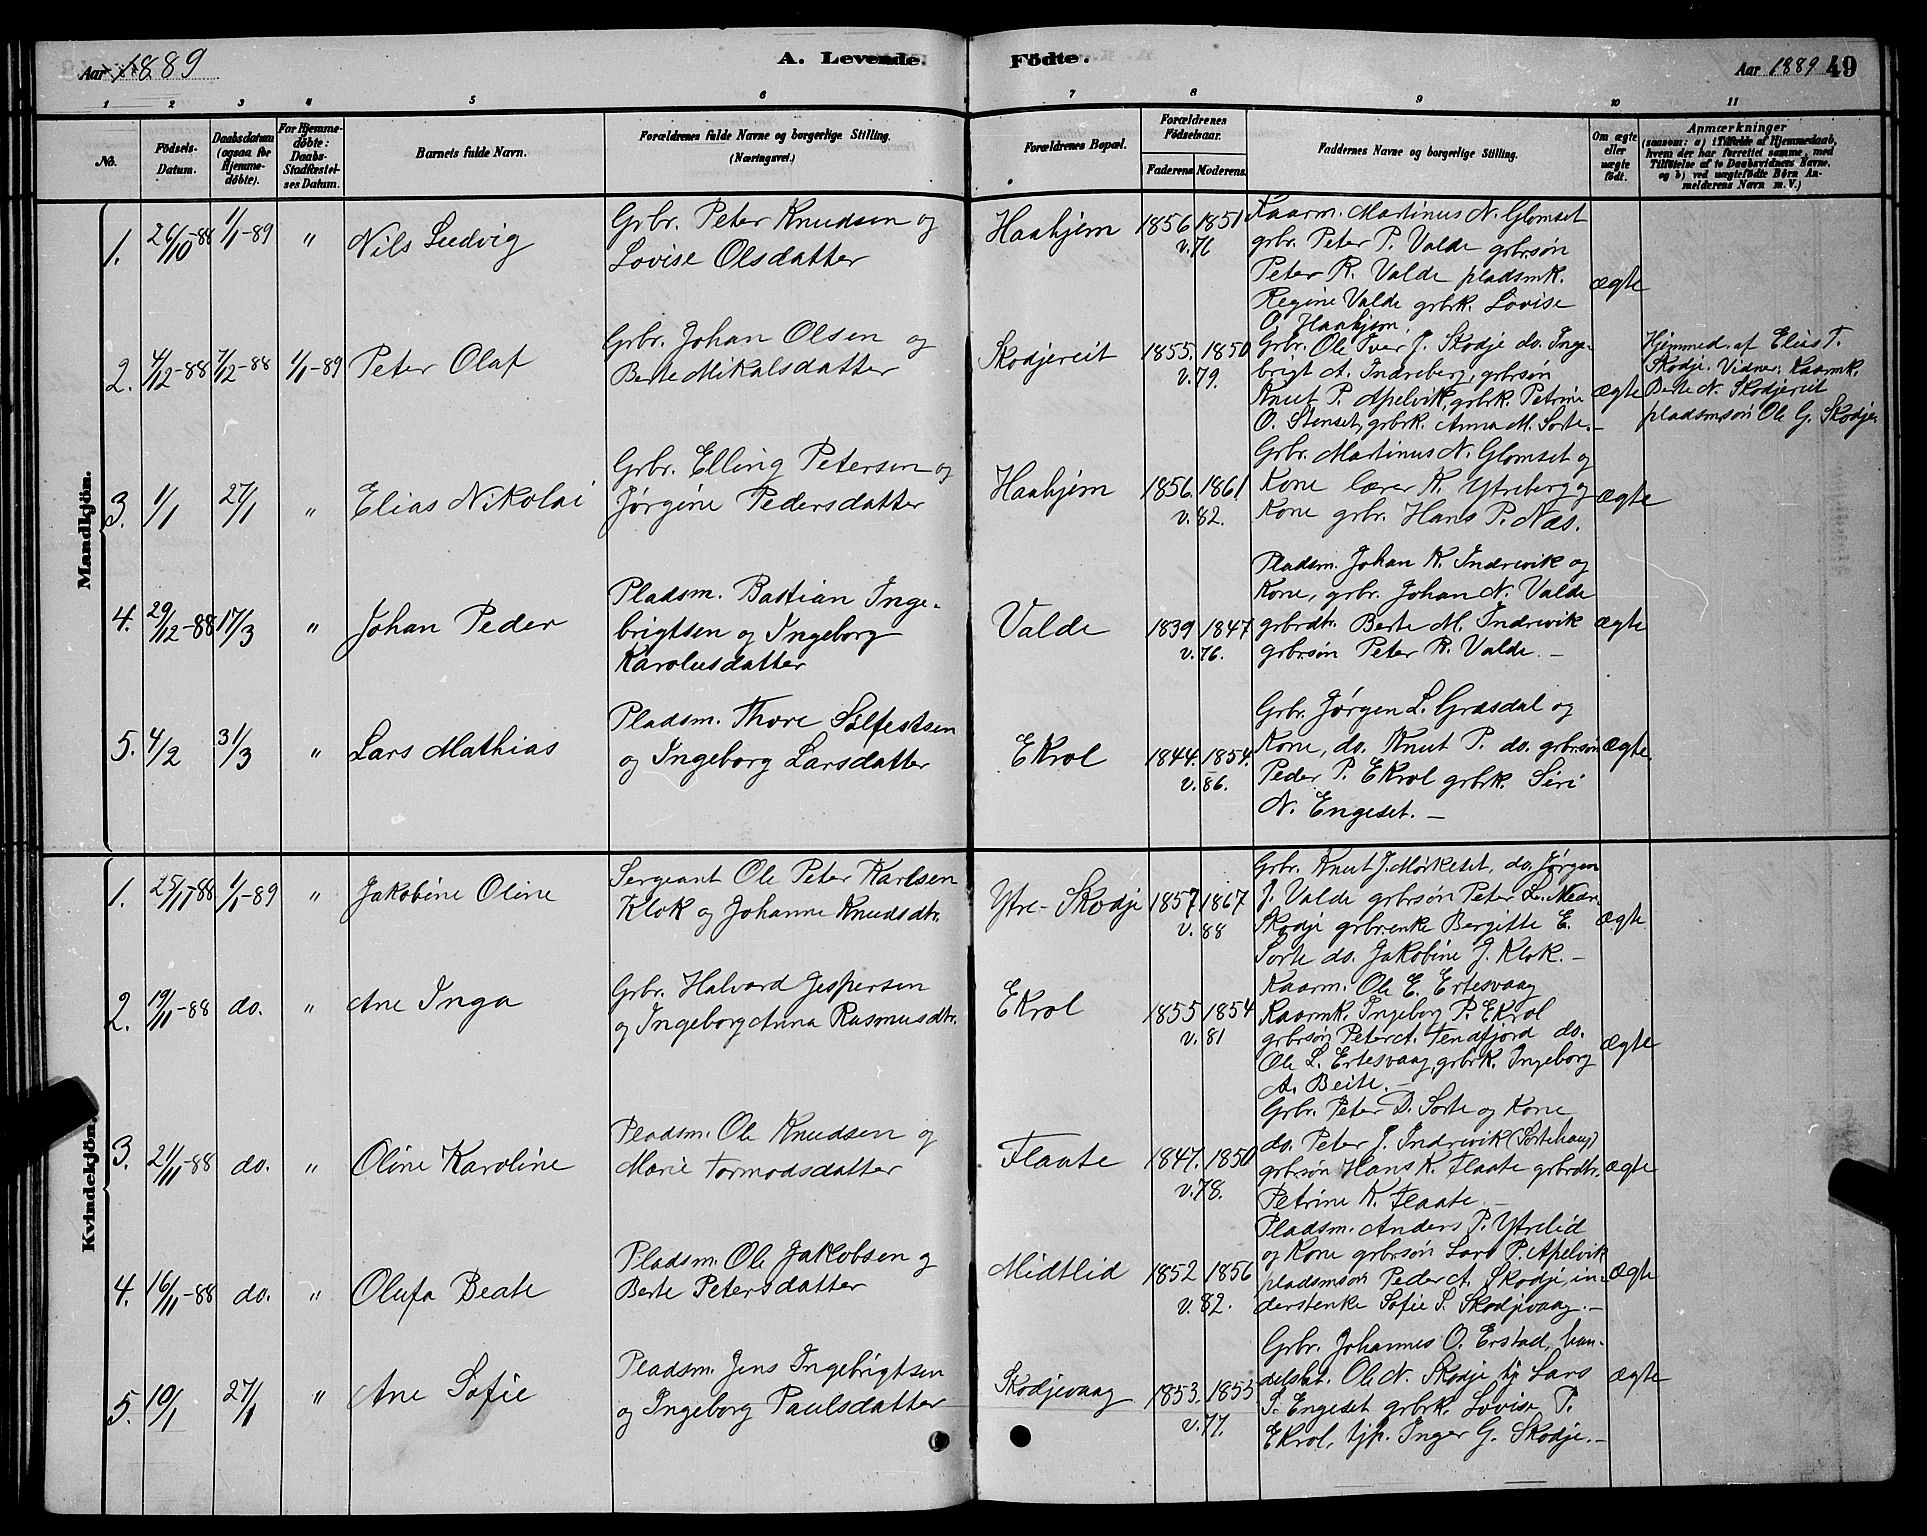 Aar 1889
A. Levende.
Födte.
Aar 1889 49
1 2 3 4 5 6 7 8 9 10 11
No.
Födsels-
Datum.
Daabsdatum
(ogsaa for
Hjemme-
döbte).
For Hjemme-
döbte:
Daabs-
Stadfæstel-
ses Datum.
Barnets fulde Navn.
Forældrenes fulde Navne og borgerlige Stilling.
(Næringsvei.)
Forældrenes Bopæl.
Forældrenes
Födselsaar.
Faderens. Moderens.
Faddernes Navne og borgerlige Stilling.
Om ægte
eller
uægte
födt.
Anmærkninger
(saasom: a) i Tilfælde af Hjemmedaab,
hvem der har forrettet samme, med
Tilföielse af to Daabsvidners Navne,
og b) ved uægtefödte Börn An-
melderens Navn m. V.)
Mandkjön.
1. 26/10-88 1/1-89 " Nils Ludvig
Grbr. Peter Knudsen og
Lovise Olsdatter
Haahjem 1856 1851
v. 76
Kaarm. Martinus N. Glomset
grbr. Peter P. Valde grbrsøn
Peter R. Valde pladsmk.
Regine Valde grbrk. Lovise
O. Haahjem.
ægte
2. 4/12-88 7/12-88 1/1-89 Peter Olaf
Grbr. Johan Olsen og
Berte Mikalsdatter
Skodjereit 1855. 1850
v. 79.
Grbr. Ole Iver J. Skodje do. Inge-
brigt A. Indreberg, grbrsøn
Knut P. Apelvik, grbrk. Petrine
O. Stenset, grbrk. Anna M. Sorte.-
ægte
Hjemmed. af Elias T.
Skodje. Vidner: Kaarmk.
Berte N. Skodjereit
pladsmsøn Ole G. Skodje
3. 1/1 27/1 " Elias Nikolai
Grbr. Elling Petersen og
Jørgine Pedersdatter
Haahjem 1856. 1861
v. 82.
Grbr. Martinus N. Glomset og
Kone lærer K. Ytreberg og
Kone grbr. Hans P. Næs.
ægte
4. 29/12-88 17/3 " Johan Peder
Pladsm. Bastian Inge-
brigtsen og Ingeborg
Karolusdatter
Valde 1839 1847
v. 76.
Pladsm. Johan K. Indrevik og
Kone, grbr. Johan N. Valde
grbrdtr. Berte M. Indrevik
grbrsøn Peter R. Valde. -
ægte
5. 4/2 31/3 " Lars Mathias
Pladsm. Thore Sølfestsen
og Ingeborg Larsdatter
Ekrol 1844. 1854.
v. 86.
Grbr. Jørgen L. Græsdal og
Kone, do. Knut P. do. grbrsøn
Peder P. Ekrol grbrk. Siri
N. Engeset. -
ægte
Kvindekjön.
1. 25/11-88 1/1-89 " Jakobine Oline
Sergeant Ole Peter Karlsen
Klok og Johanne Knudsdtr.
Ytre-Skodje 1857 1867
v. 88
Grbr. Knut J. Mørkeset, do. Jørgen
J. Valde grbrsøn Peter L. Nedr.
Skodje grbrenke Bergitte E.
Sorte do. Jakobine J. Klok. -
ægte
2. 19/11-88 do. " Ane Inga
Grbr. Halvard Jespersen
og Ingeborg Anna Rasmusdtr.
Ekrol 1855 1854
v. 81
Kaarm. Ole E. Ertesvaag
Kaarmk. Ingeborg P. Ekrol
grbrsøn Peter A. Tenfjord do.
Ole L. Ertesvaag, grbrk. Ingeborg
A. Beite. -
ægte
3. 21/11-88 do. " Oline Karoline
Pladsm. Ole Knudsen og
Marie Tormodsdatter
Flaate 1847. 1850
v. 78.
Grbr. Peter D. Sorte og Kone
do. Peter J. Indrevik (Sortehaug)
grbrsøn Hans K. Flaate grbrdtr.
Petrine K. Flaate. -
ægte
4. 16/11-88 do. " Olufa Beate
Pladsm. Ole Jakobsen og
Berte Petersdatter
Midtlid 1852 1856
v. 82.
Pladsm. Anders P. Ytrelid
og Kone grbrsøn Lars P. Apelvik
pladsmsøn Peder A. Skodje, in-
derstenke Sofie S. Skodjevaag. -
ægte
5. 10/1 27/1 " Ane Sofie
Pladsm. Jens Ingebrigtsen
og Ingeborg Paulsdatter
Skodjevaag 1853. 1853
v. 77.
Grbr. Johannes O. Erstad, han-
delsbt. Ole N. Skodje tj. Lars
S. Engeset grbrk. Lovise P.
Ekrol, tjp. Inger G. Skodje. -
ægte